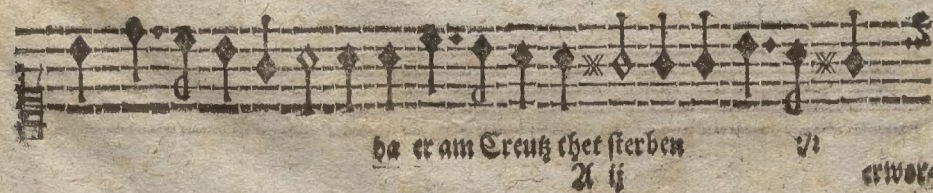 da er am Creutz thet sterben :/:
A ij erwor-